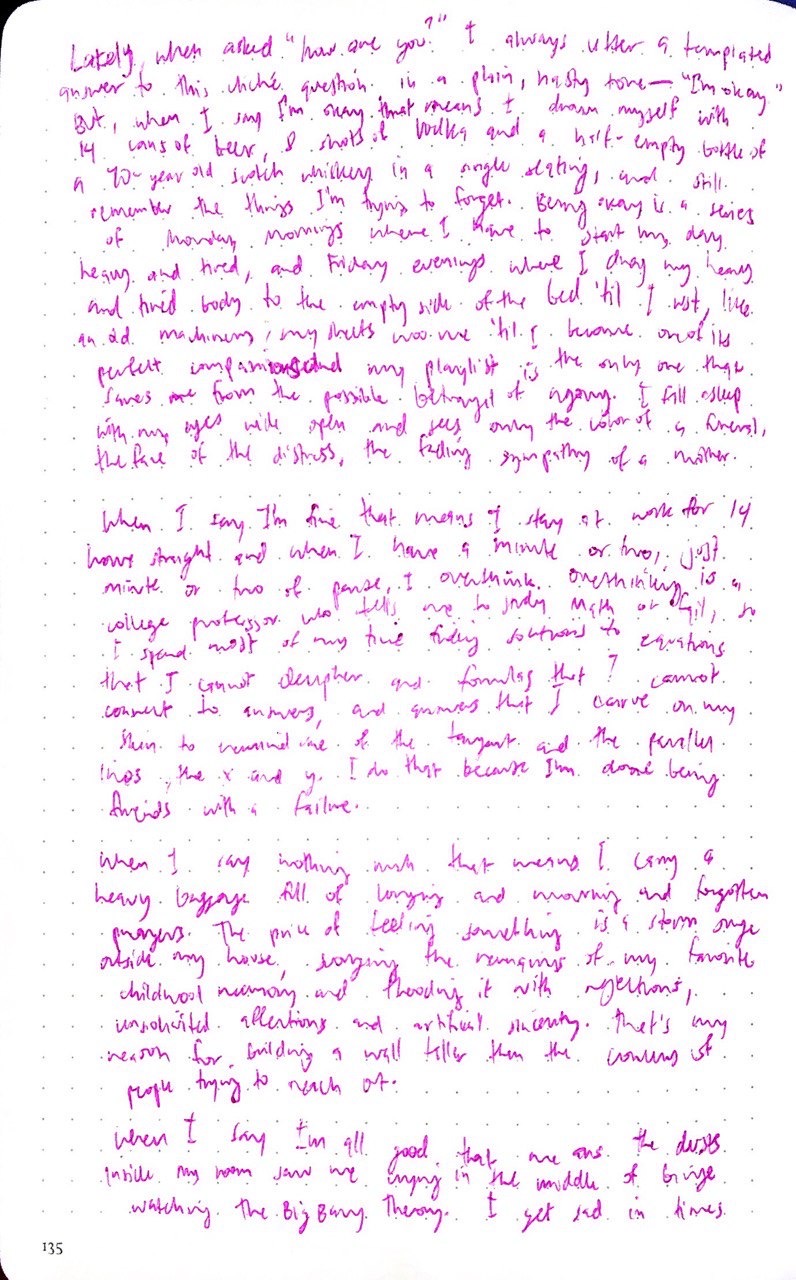 Lately, when asked "how are you?" I always utter a templated
answer to this cliché question in a plain, hasty tone — "I'm okay"
But, when I say I'm okay that means I drown myself with
14 cans of beer, 8 shots of vodka and a half-empty bottle of
a 70-year old scotch whiskey in a single seating, and still
remember the things I'm trying to forget. Being okay is a series
of Monday mornings where I have to start my day
heavy and tired, and Friday evenings where I drag my heavy
and tired body to the empty side of the bed 'til I rot, like
an old machinery, my sheets woo me 'til I become one of its
perfect companions and my playlist is the only one that
saves me from the possible betrayal of agony. I fall asleep
with my eyes wide open and sees only the color of a funeral,
the face of the distress, the fading sympathy of a mother.
When I say I'm fine that means I stay at work for 14
hours straight and when I have a minute or two, just
minute or two of pause, I overthink. Overthinking is a
college professor who tells me to study math or fail, so
I spend most of my time finding solutions to equations
that I cannot decipher and formulas that I cannot
convert to answers, and answers that I carve on my
skin to remind me of the tangent and the parallel
lines, the x and y. I do that because I'm done being
friends with a failure.
When I say nothing much that means I carry a
heavy baggage full of longing and mourning and forgotten
prayers. The price of feeling something is a storm surge
outside my house, the remains of my favorite
childhood memory and flooding it with rejections,
unsolicited affections and artificial sincerity. That's my
reason for building a wall taller than the of
people trying to reach out.
When I say I'm all good that means the dusts
inside my room saw me crying in the middle of binge
watching The Big Bang Theory. I get sad in times
135